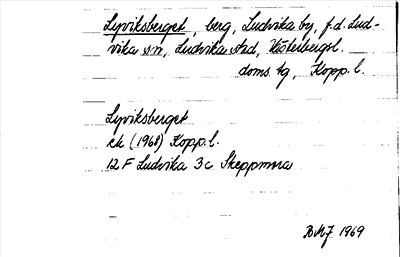 Lyviksberget, berg, Ludvika by, f.d. Lud-
vika sn, Ludvika stad, Västerbergsl.
doms. hg, Kopp. l.
Lyviksberget
ek (1968) Kopp. l.
12 F Ludvika 3c Skeppmora
BMJ 1969